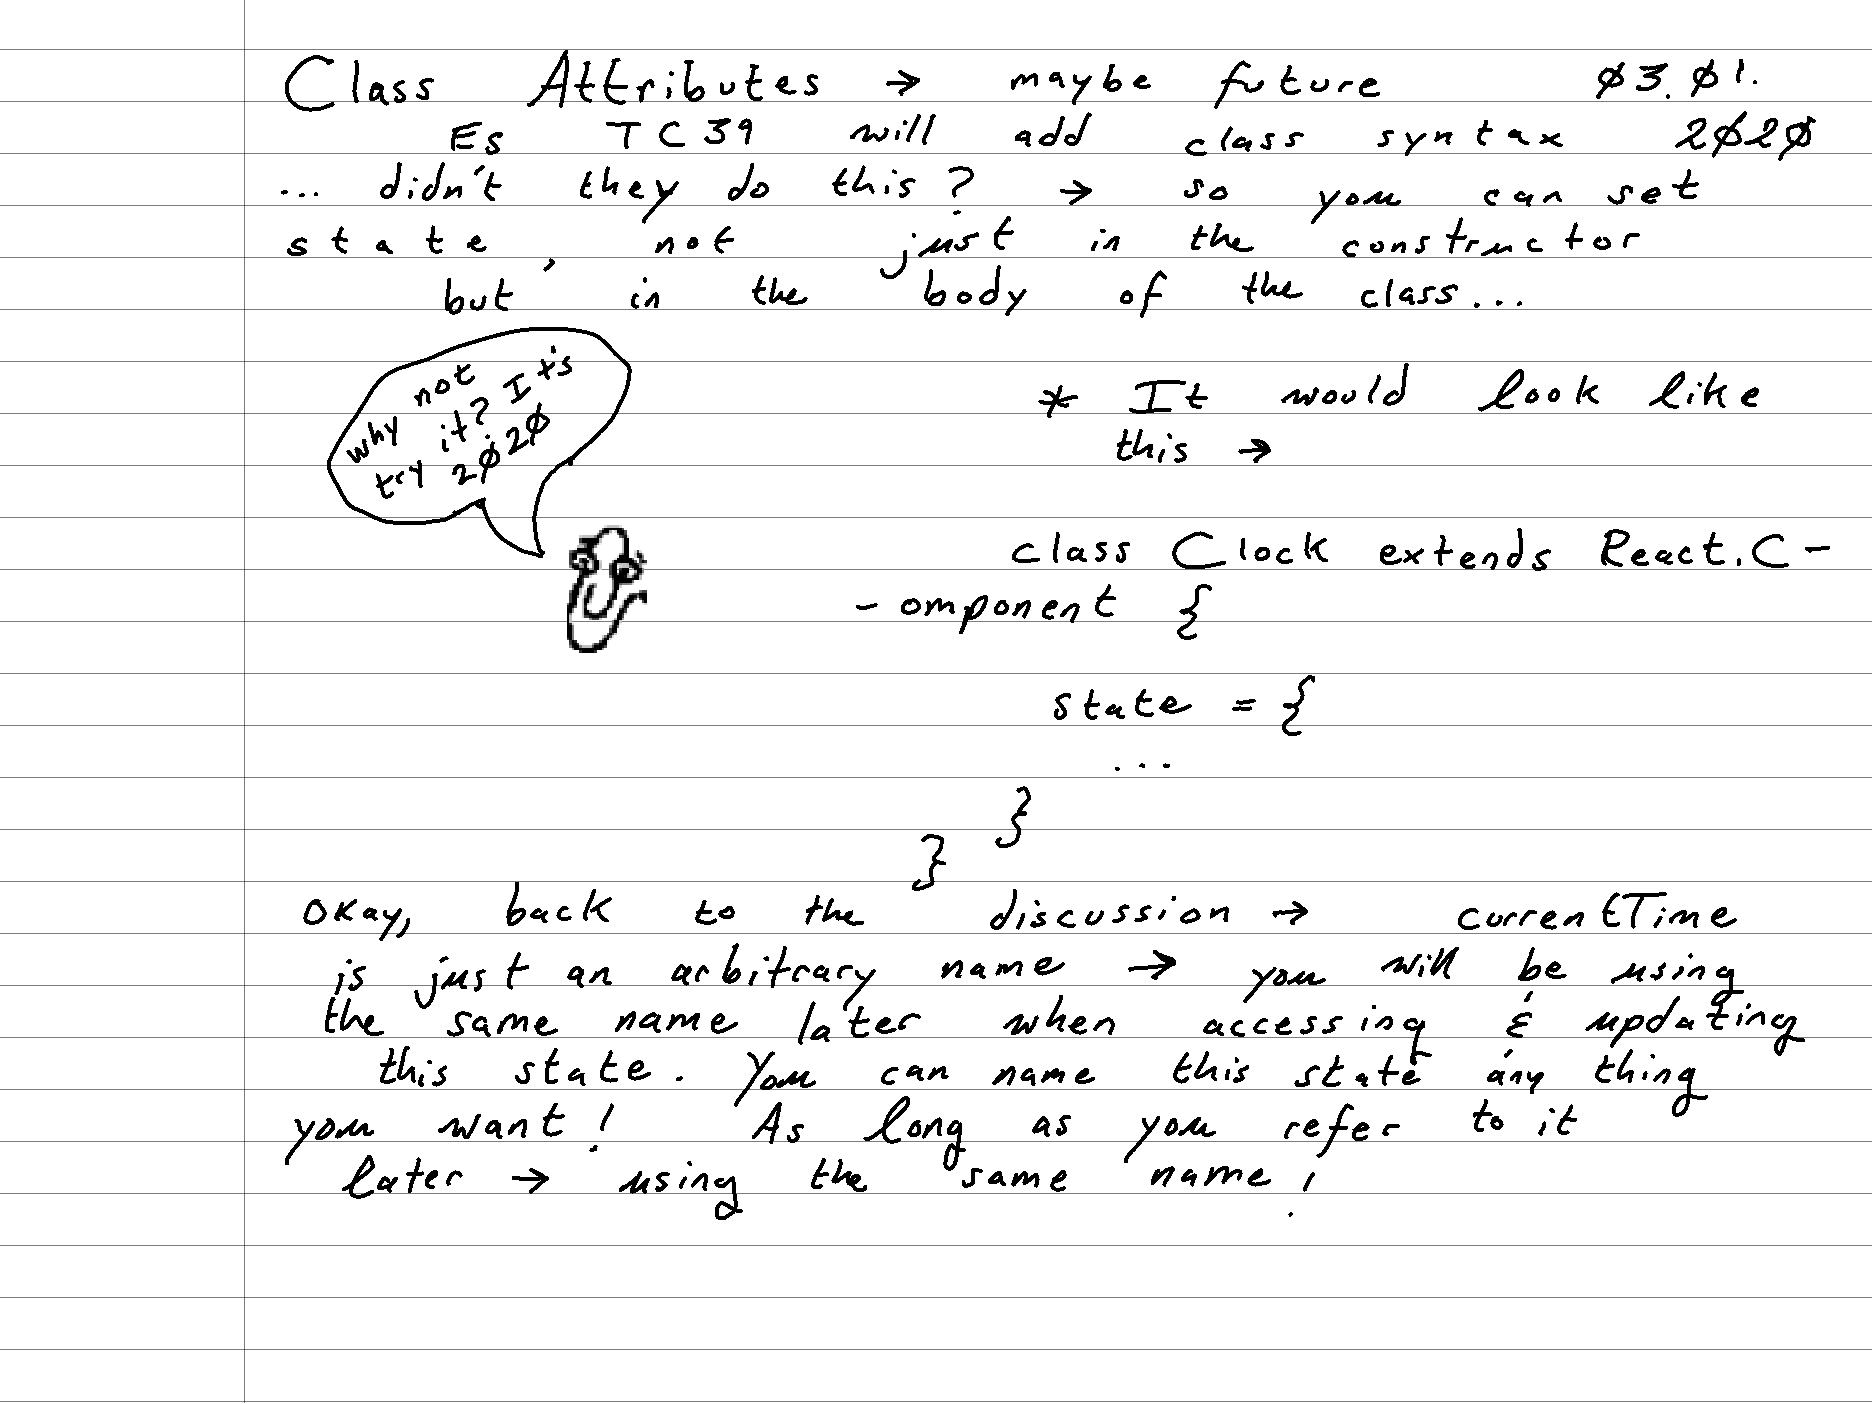 Class Attributes → maybe future 03.01.
Es TC39 will add class syntax 2020
... didn't they do this? → so you can set
state, not just in the constructor
but in the body of the class...
why not
try it? It's
2020
* It would look like
this →
class Clock extends React.C-
-omponent {
state = {
...
}
}
Okay, back to the discussion → currentTime
is just an arbitrary name → you will be using
the same name later when accessing & updating
this state. You can name this state any thing
you want! As long as you refer to it
later → using the same name!